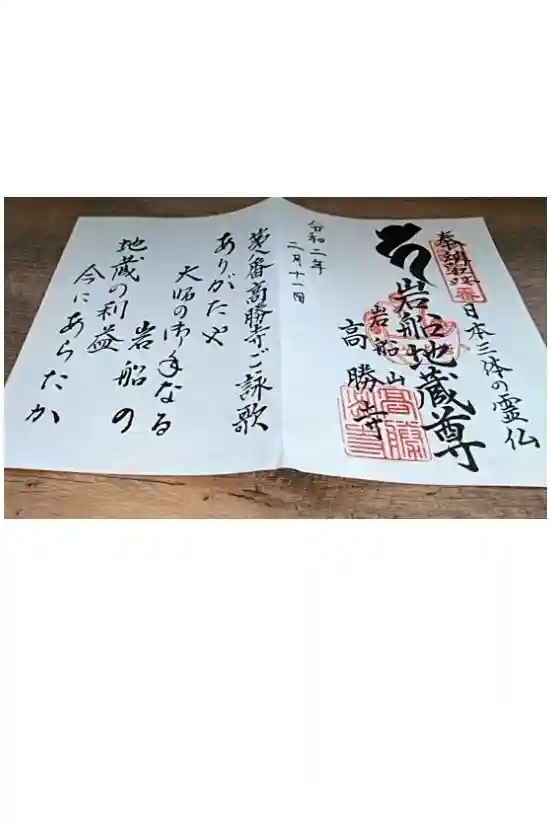 奉納
日本三体の霊仏
岩船地蔵尊
岩船山
高勝寺
令和二年
二月十一日
高勝寺ご詠歌
ありがたや
大師の御手なる
岩船の
地蔵の利益
今にあらたか